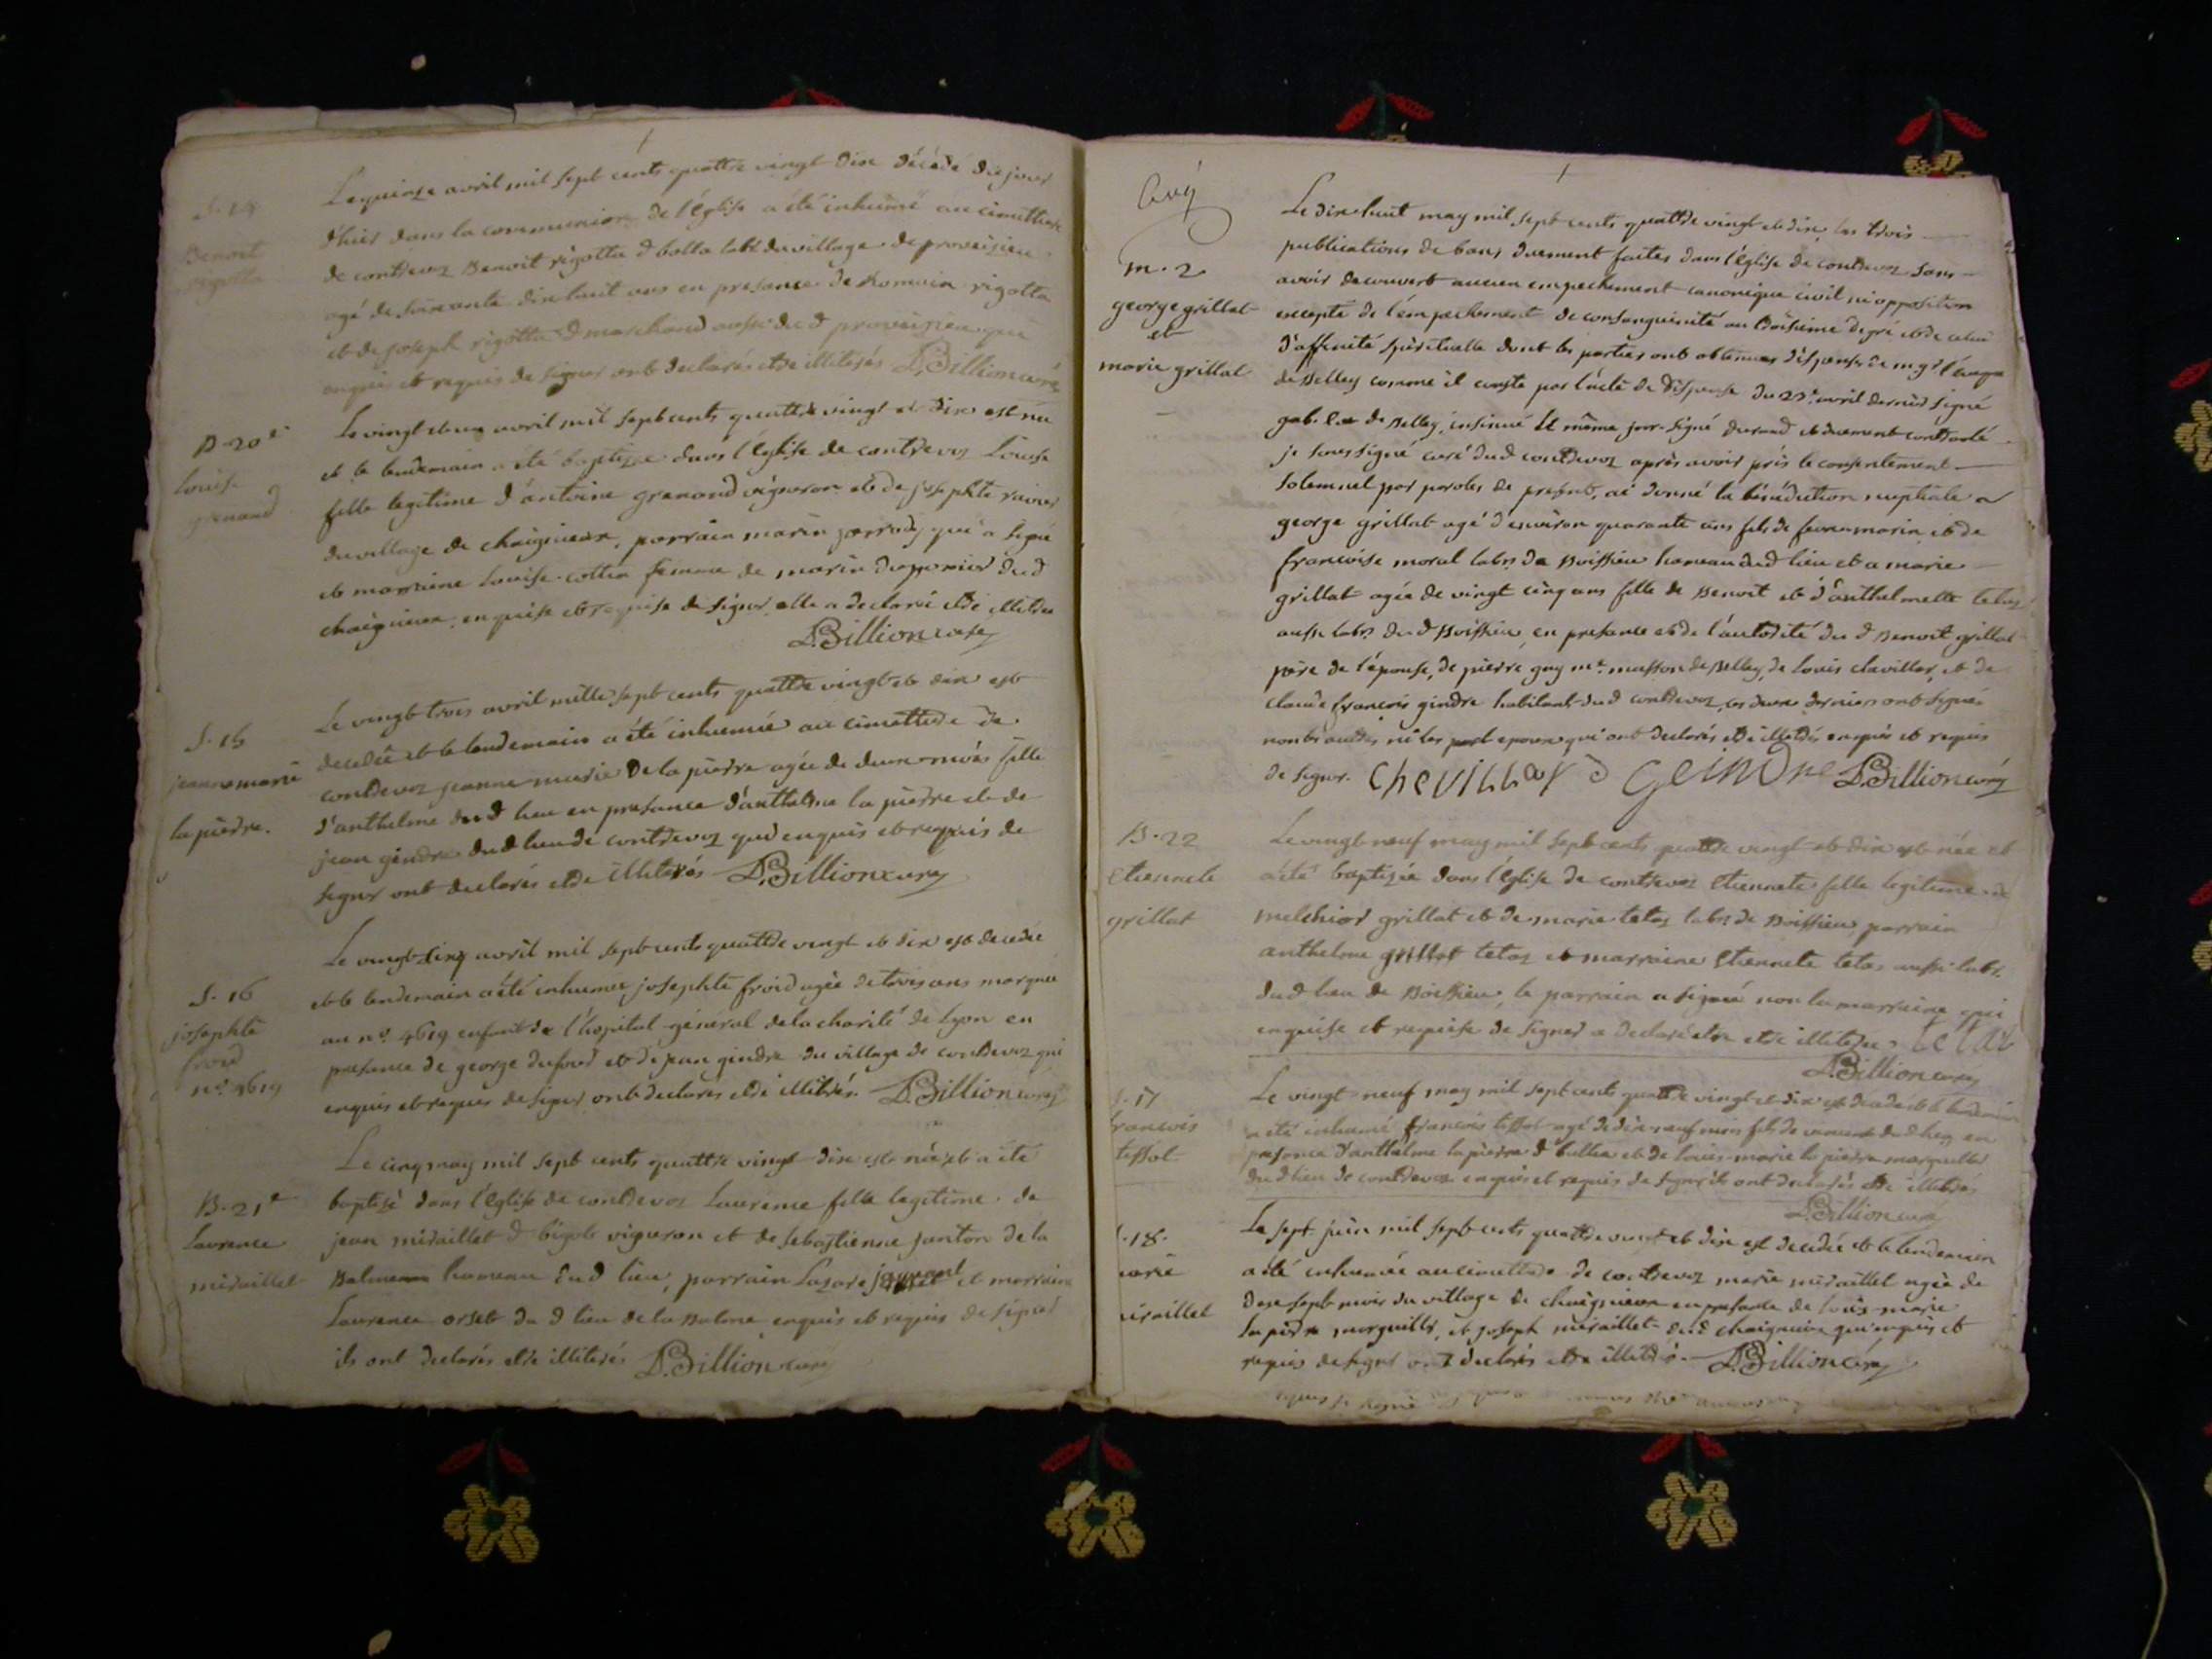 S. 14
Benoit
rigotta
Le quinze avril mil sept cents quattre vingt dix décédé du jour
d'hier dans la communion de l'Eglise a été inhumé au cimettiere
de contrevoz Benoit rigotta d bolla labr du village de proveizieu
agé de soixante dix huit ans en presance de Romain rigotta
et de joseph rigotta d marchand aussi dud proveizieu qui
enquis et requis de signer ont declarés etre illiterés D. Billion curé
B. 20e
Louise
grenaud
Le vingt et un avril mil sept cents quattre vingt et dix est née
et le lendemain a été baptizée dans l'Eglise de contrevoz Louise
fille legitime d'antoine grenaud vigneron et de josephte
du village de chaignieux, parrain marin qui a signé
et marraine Louise cottin femme de marin dupommier dud
chaignieux, enquise et requise de signer elle a declaré etre illitere
D. Billion curé
S. 15
jeanne marie
la pierre.
Le vingt trois avril mille sept cents quattre vingt et dix est
decedée et le lendemain a été inhumée au cimettiere de
contrevoz jeanne marie De la pierre agée de deux mois fille
d'anthelme dud lieu en presance d'anthelme la pierre et de
jean gindre dud lieu de contrevoz qui enquis et requis de
signer ont declarés etre illiterés D. Billion curé
S. 16
josephte
froid
no. 4619
Le vingt cinq avril mil sept cents quattre vingt et dix est decedée
et le lendemain a été inhumée josephte froid agée de trois ans marquée
au no. 4619 enfant de l'hopital général de la charité de Lyon en
presance de george dufour et de jean gindre du village de contrevoz qui
enquis et requis de signer ont declarés etre illiterés. D. Billion curé
B. 21e
Laurence
miraillet
Le cinq may mil sept cents quattre vingt dix est née et a été
baptisé dans l'Eglise de contrevoz Laurence fille legitime de
jean miraillet d bigot vigneron et de sebastienne janton de la
Balme hameau dud lieu, parrain Lazare et marraine
Laurence orset du d lieu de la Balme enquis et requis de signer
ils ont declarés etre illiterés D. Billion curé
m. 2
george grillat
et
marie grillat
Le dix huit may mil sept cents quattre vingt et dix, les trois
publications de bans duement faites dans l'église de contrevoz sans
avoir decouvert aucun empechement canonique civil ni opposition
excepté de l'empechement de consanguinité au troisieme degré et de celui
d'affinité spirituelle dont les parties ont obtenues dispense de mgr l'éveque
de Belley comme il conste par l'acte de dispense du avril dernier signé
gab. Eve de Belley, insinué le même jour signé durand et duement controlé
je soussigné curé dud contrevoz après avoir pris le consentement
solemnel par paroles de present, ai donné la bénédiction nuptiale a
george grillat agé d'environ quarante ans fils de feu marin et de
françoise moral labrs de Boissieu hameau dud lieu et a marie
grillat agée de vingt cinq ans fille de Benoit et d'anthelmette tetaz
aussi labrs du d Boissieu, en presance et de l'autorité du d Benoit grillat
père de l'épouse, de pierre guy me. masson de Belley, de Louis chevillar, et de
claude françois gindre habitant dud contrevoz, ces deux derniers ont signés
non les autres ni les epoux qui ont declarés etre illiterés enquis et requis
de signer. chevillar geindre D. Billion curé
B. 22
Etiennete
grillat
Le vingt neuf may mil sept cents quattre vingt et dix est née et
a été baptizée dans l'Eglise de contrevoz Etiennete fille legitime de
melchior grillat et de marie tetaz labrs de Boissieu, parrain
anthelme grillat tetaz et marraine Etiennete tetaz aussi labr.
dud lieu de Boissieu, le parrain a signé non la marraine qui
enquise et requise de signer a declaré etre illiterée. tetaz
D. Billion curé
S. 17
francois
tissot
Le vingt neuf may mil sept cents quattre vingt et dix est decedé et le lendemain
a été inhumé françois tissot agé de dix neuf mois fils de vincent dud lieu, en
presance d'anthelme la pierre d bullie et de louis marie la pierre marguillier
du d lieu de contrevoz enquis et requis de signer ils ont declarés etre illiterés
D. Billion curé
S. 18.
marie
miraillet
Le sept juin mil sept cents quattre vingt et dix est decedée et le lendemain
a été inhumée au cimettiere de contrevoz marie miraillet agée de
dix sept mois du village de chaignieux en presance de louis marie
la pierre marguillr, et joseph miraillet dud chaignieux qui enquis et
requis de signer ont declarés etre illiterés. D. Billion curé